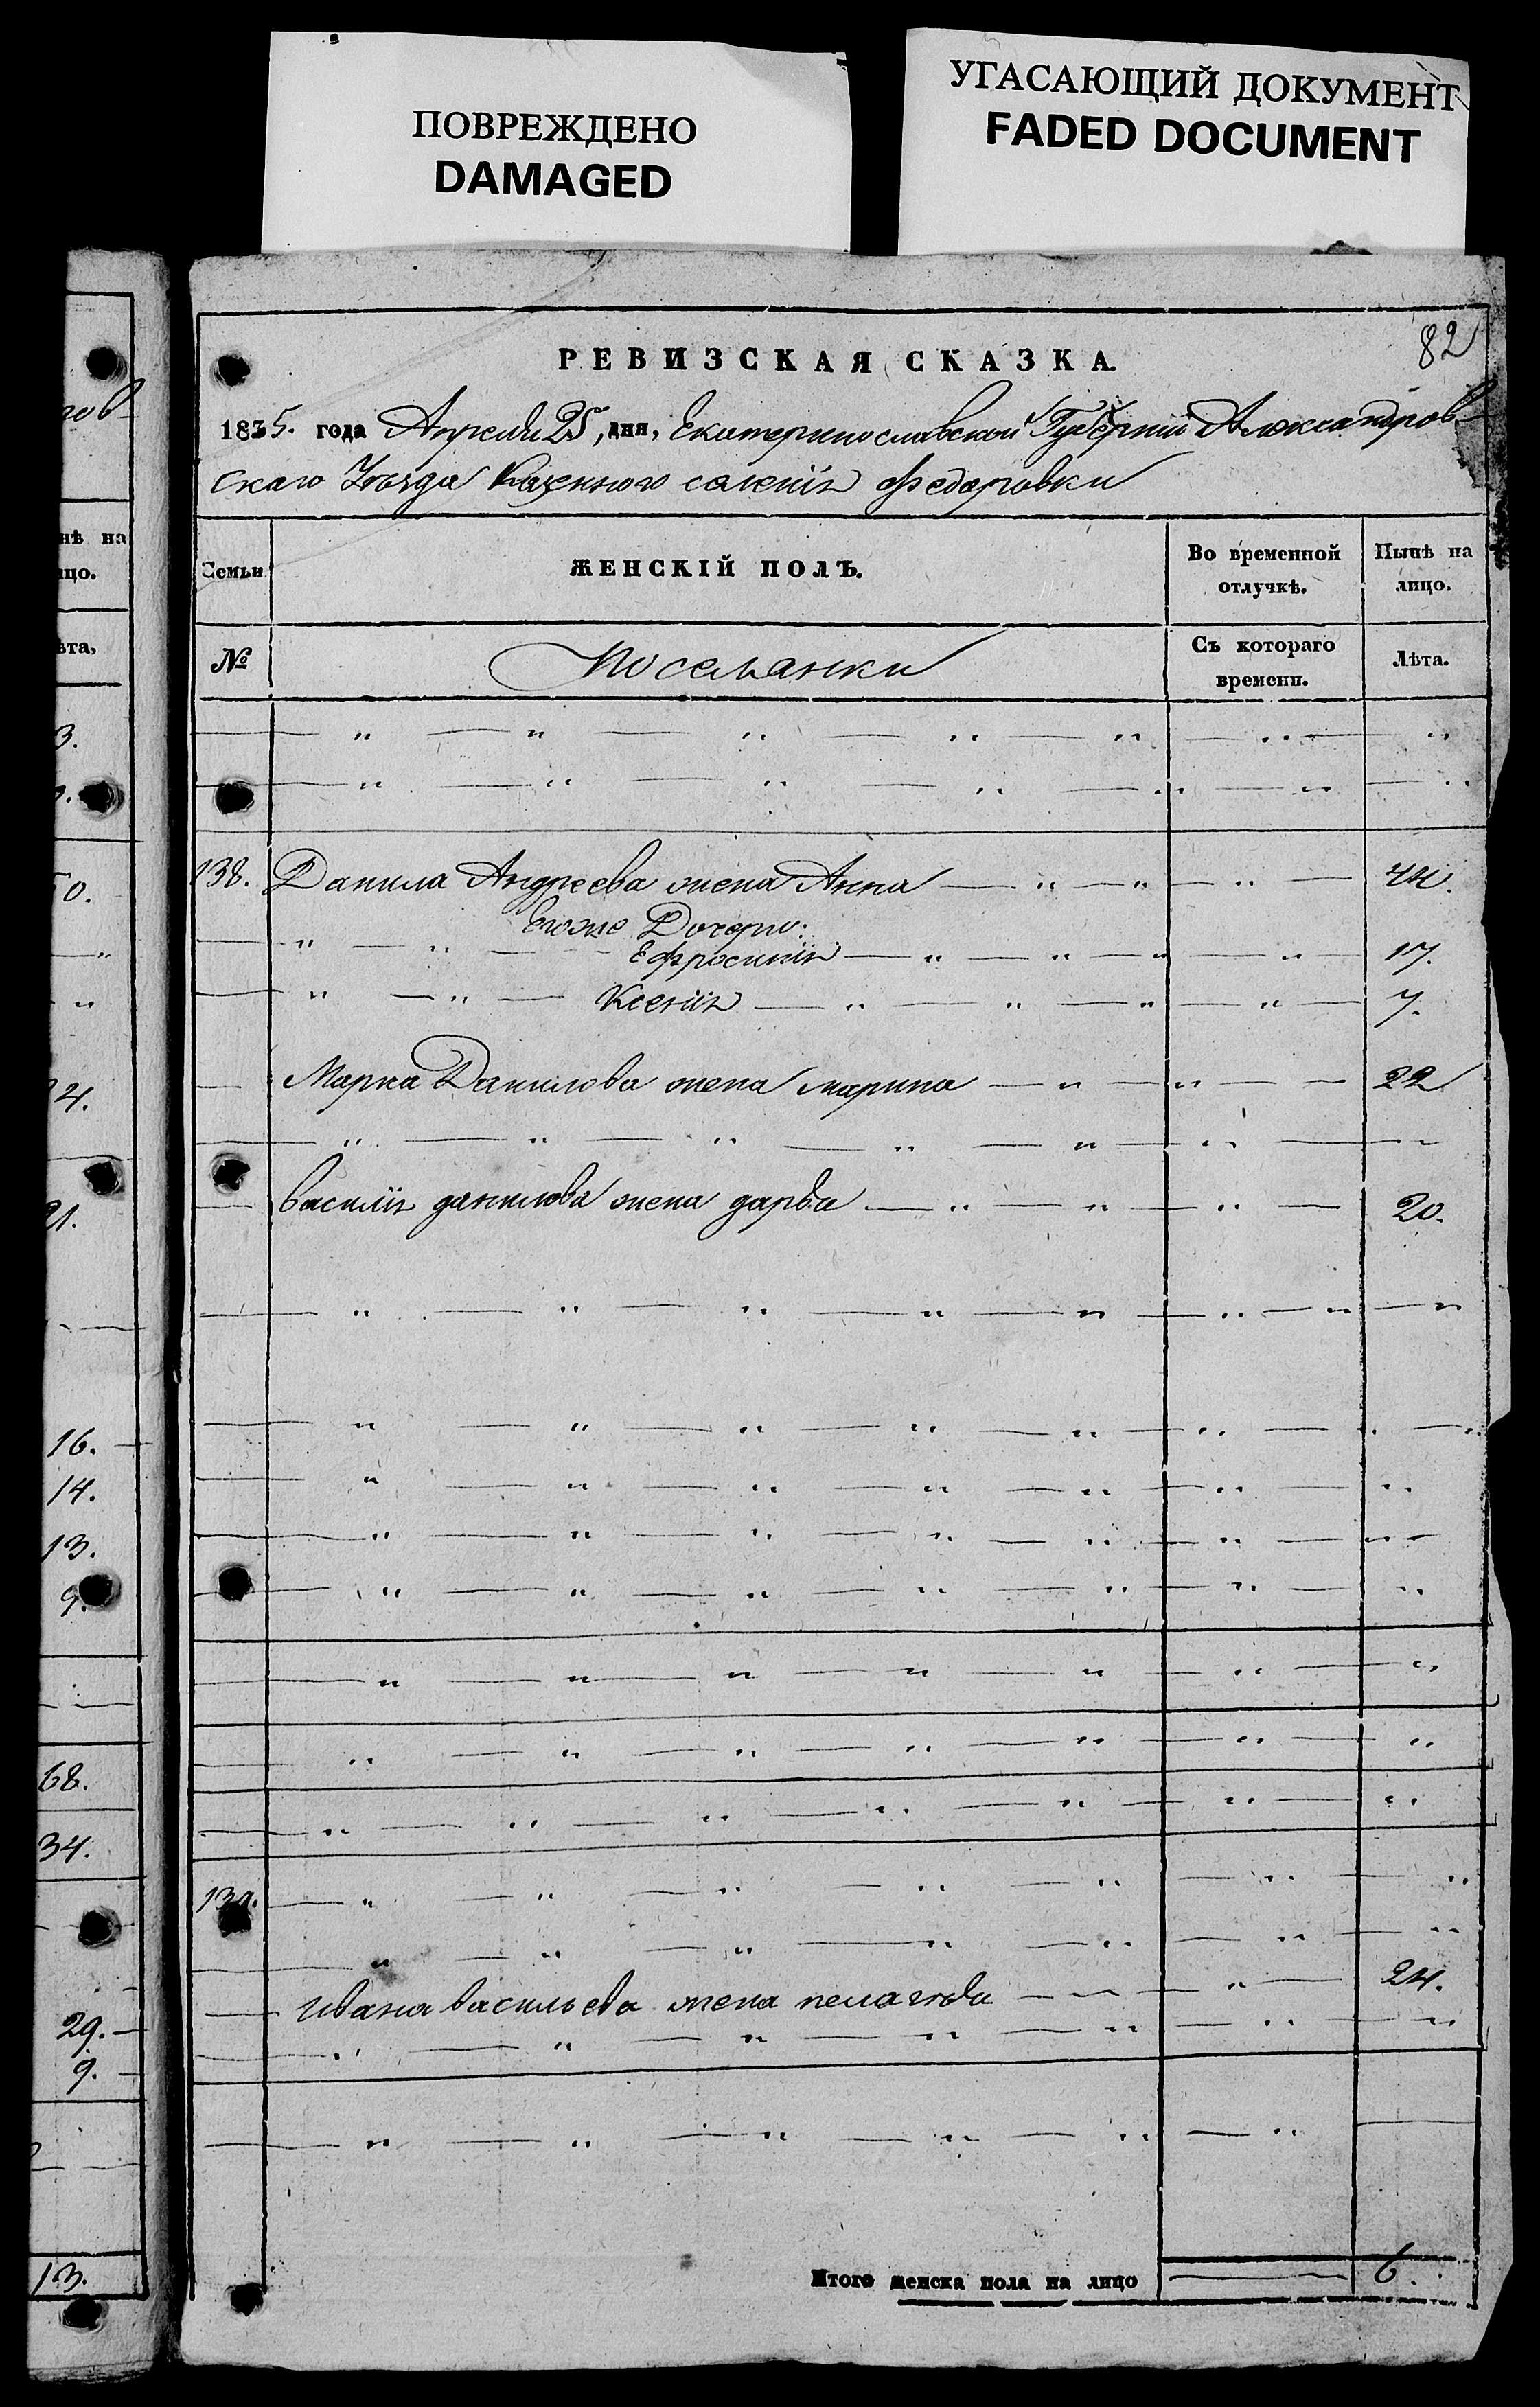 ПОВРЕЖДЕНО
DAMAGED
УГАСАЮЩИЙ ДОКУМЕНТ
FADED DOCUMENT
82
РЕВИЗСКАЯ СКАЗКА.
1835. года Апреля 25, дня, Екатеринославской Губернии Александров-
скаго Уезда Казенного селения Федоровки
Семьи ЖЕНСКІЙ ПОЛЪ. Во временной отлучкѣ. Нынѣ на лицо.
№ Поселянки Съ котораго времени. Лѣта.
138. Данила Андреева жена Анна 44.
Егоже Дочери:
Ефросинія 17.
Ксенія 7.
Марка Данилова жена марина 22
василія данилова жена дарья 20.
139.
ивана васильева жена пелагея 24.
Итого женска пола на лицо 6.
нѣ на
ицо.
ѣта,
3.
50.
24.
21.
16.
14.
13.
9.
68.
34.
29.
9.
13.